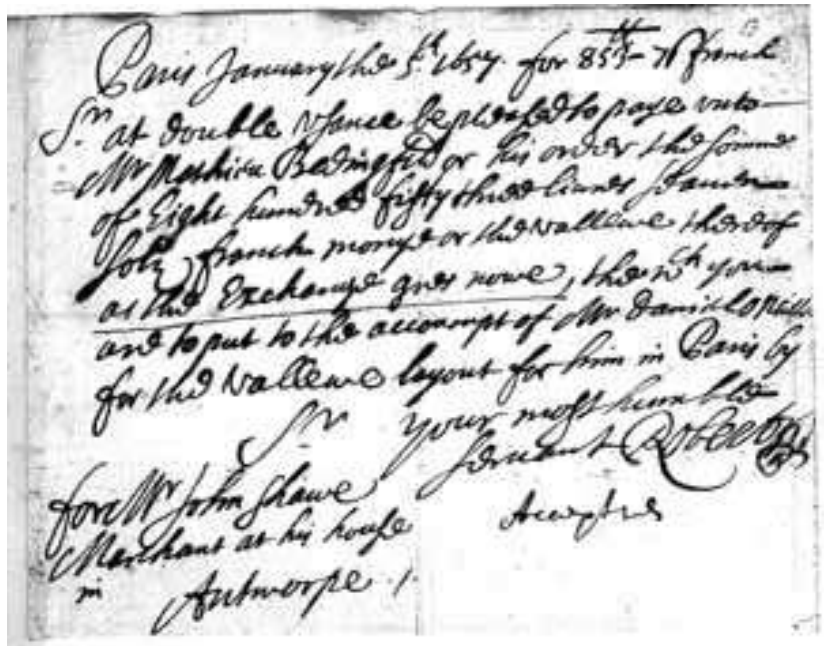 Paris January the 5th 1657. for 853lt - 7s french
Sr at double usance be pleased to paye unto
Mr Mathieu Bedingfeld or his order the somme
of Eight hundred fifty three livres seauen
solz french monye or the vallewe thereof
as the Exchange goes nowe, the wch you
are to put to the accompt of Mr Daniel
for the vallewe layout for him in Paris by
Sr your most humble
servant
fore Mr John Shawe
Marchant at his house
in Antworpe
Accepted